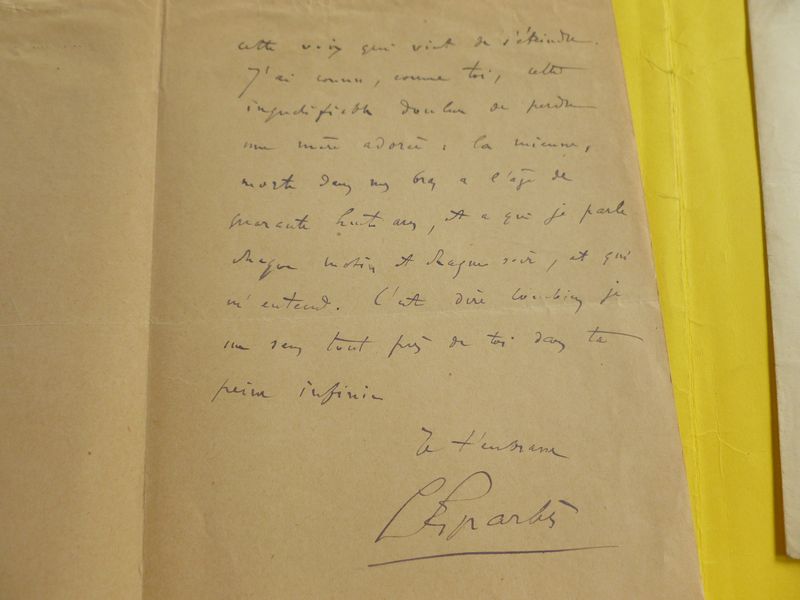 cette voix qui vient de s'éteindre.
J'ai connu, comme toi, cette
douleur de perdre
une mère adorée : la mienne,
morte dans mes bras a l'âge de
quarante huit ans, et a qui je parle
chaque matin et chaque soir, et qui
m'entend. C'est dire combien je
me sens tout près de toi dans ta
peine infinie
Je t'embrasse